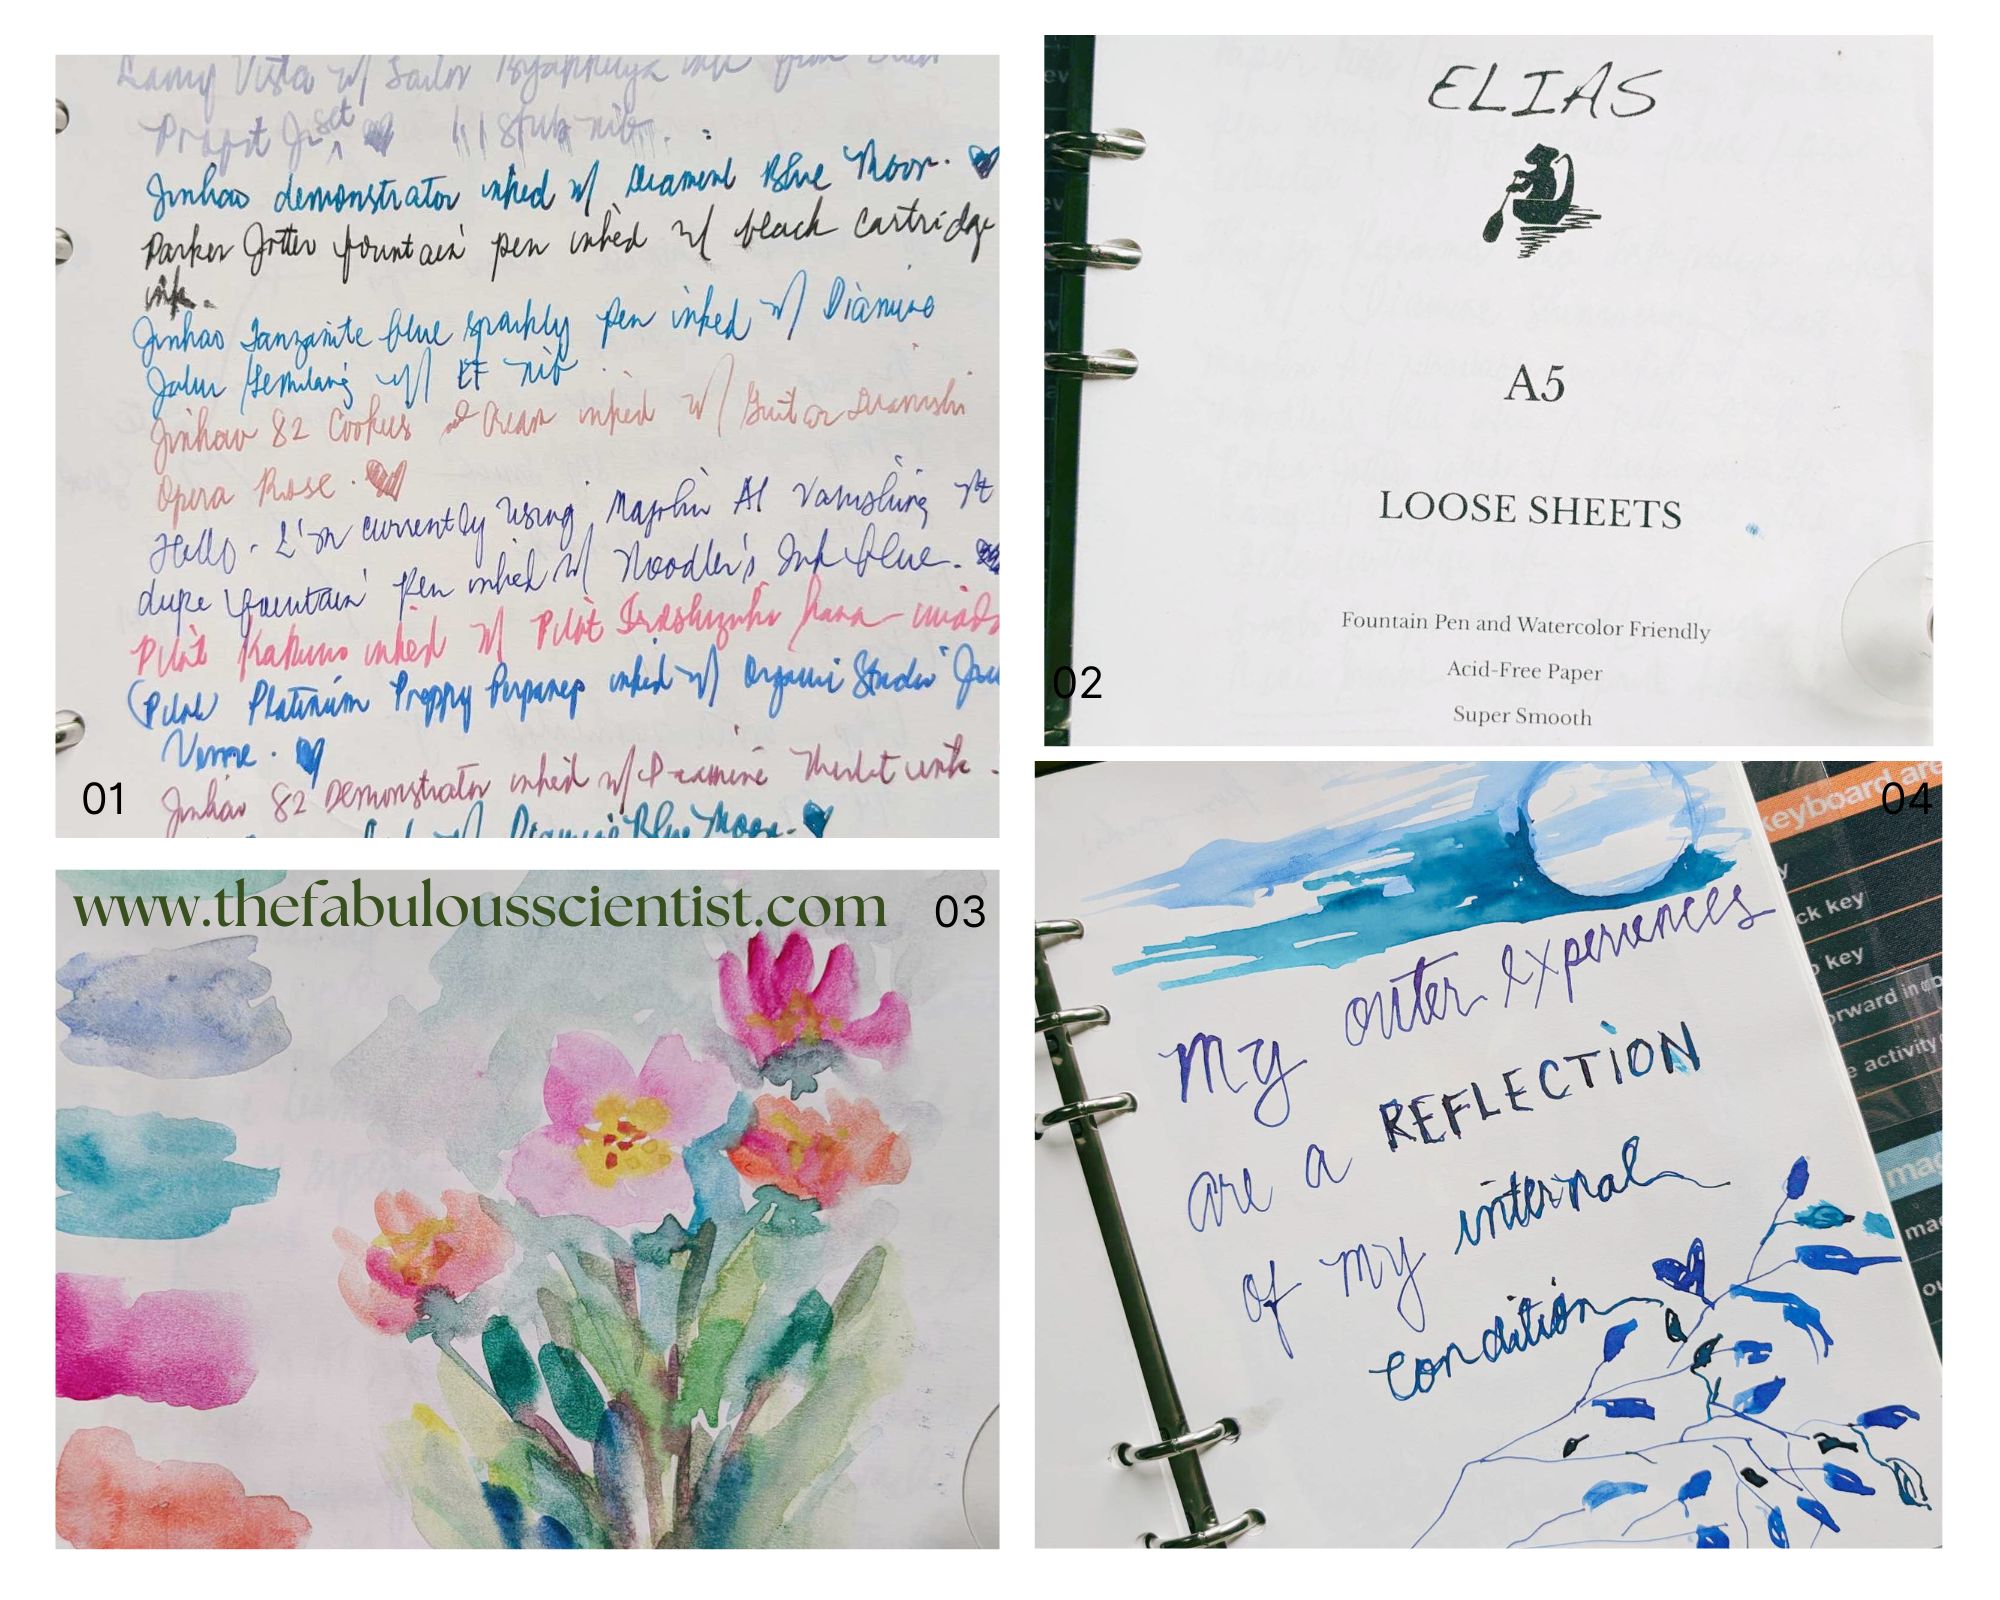 Lamy Vista w/ Sailor ink from
set
1.1 Stub nib.
Jinhao demonstrator inked w/ Diamine Blue Moon.
Parker Jotter fountain pen inked w/ black cartridge
ink.
Jinhao Tanzanite blue sparkly pen inked w/ Diamine
Jalur Gemilang w/ EF nib
Jinhao 82 Cookies and Cream inked w/
Opera Rose.
Hello. I'm currently using Majohn A1 Vanishing Pt
dupe fountain pen inked w/ Noodler's Ink blue.
Pilot Kakuno inked w/ Pilot Iroshizuku hana-
(Pilot) Platinum Preppy inked w/ Organic Studio
Verne.
Jinhao 82 Demonstrator inked w/ Diamine Merlot ink.
w/ Diamine Blue Moon.
01
ELIAS
A5
LOOSE SHEETS
Fountain Pen and Watercolor Friendly
Acid-Free Paper
Super Smooth
02
www.thefabulousscientist.com
03
04
keyboard are
ck key
key
orward in
e activity
My outer experiences
are a REFLECTION
of my internal
condition